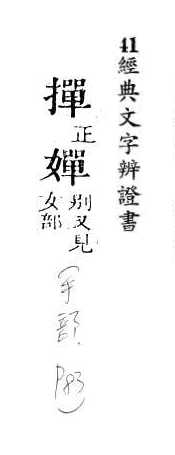 41經典文字辨證書
撣正
嬋別又見女部
(手部 P83)